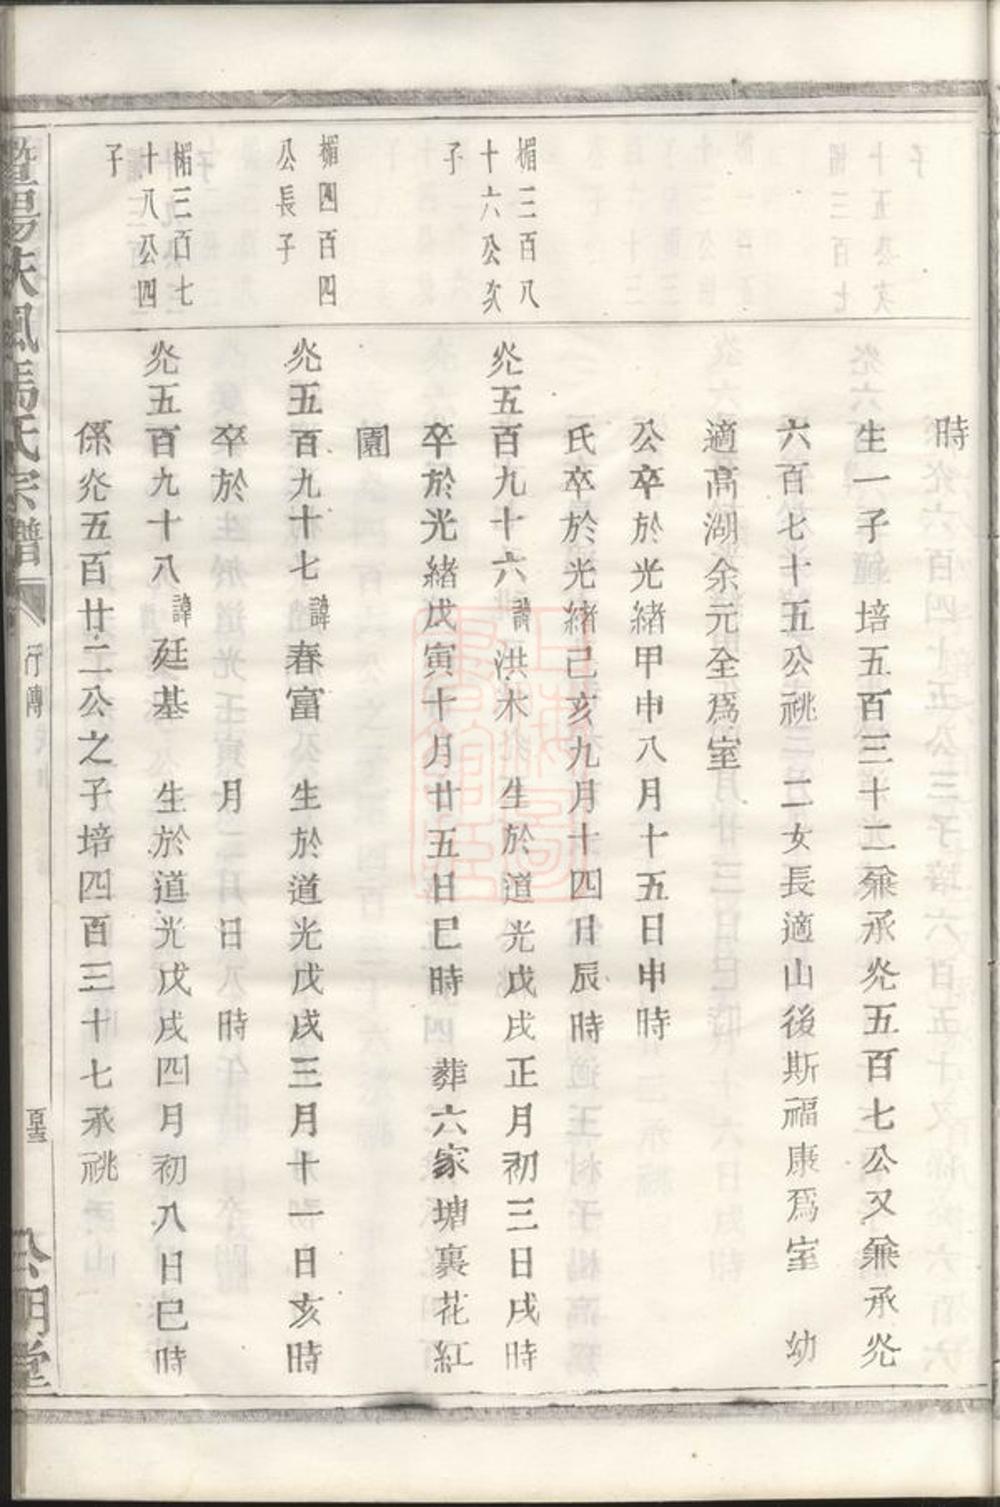 時
生一子培五百三十二兼承炎五百七公又兼承炎
六百七十五公祧 二女長適山後斯福康爲室 幼
適高湖余元全爲室
公卒於光緒甲申八月十五日申時
氏卒於光緒己亥九月十四日辰時
楣三百八
十六公次
子
炎五百九十六諱洪木 生於道光戊戌正月初三日戌時
卒於光緒戊寅十月廿五日巳時 葬六家塘裏花紅
園
楣四百四
公長子
炎五百九十七諱春富 生於道光戊戌三月十一日亥時
卒於 月 日 時
楣三百七
十八公四
子
炎五百九十八諱廷基 生於道光戊戌四月初八日巳時
係炎五百廿二公之子培四百三十七承祧
暨陽扶風馬氏宗譜
行傳